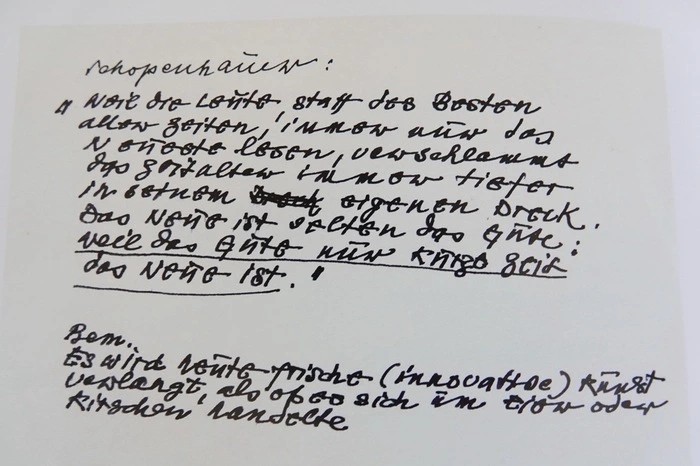 Schopenhauer:
"Weil die Leute statt des Besten
aller Zeiten, immer nur das
Neueste lesen, verschlammt
das Zeitalter immer tiefer
in seinem eigenen Dreck.
Das Neue ist selten das Gute:
weil das Gute nur kurze Zeit
das Neue ist."
Bem.
Es wird heute frische (innovative) Kunst
verlangt, als ob es sich um Eier oder
Kirschen handelte